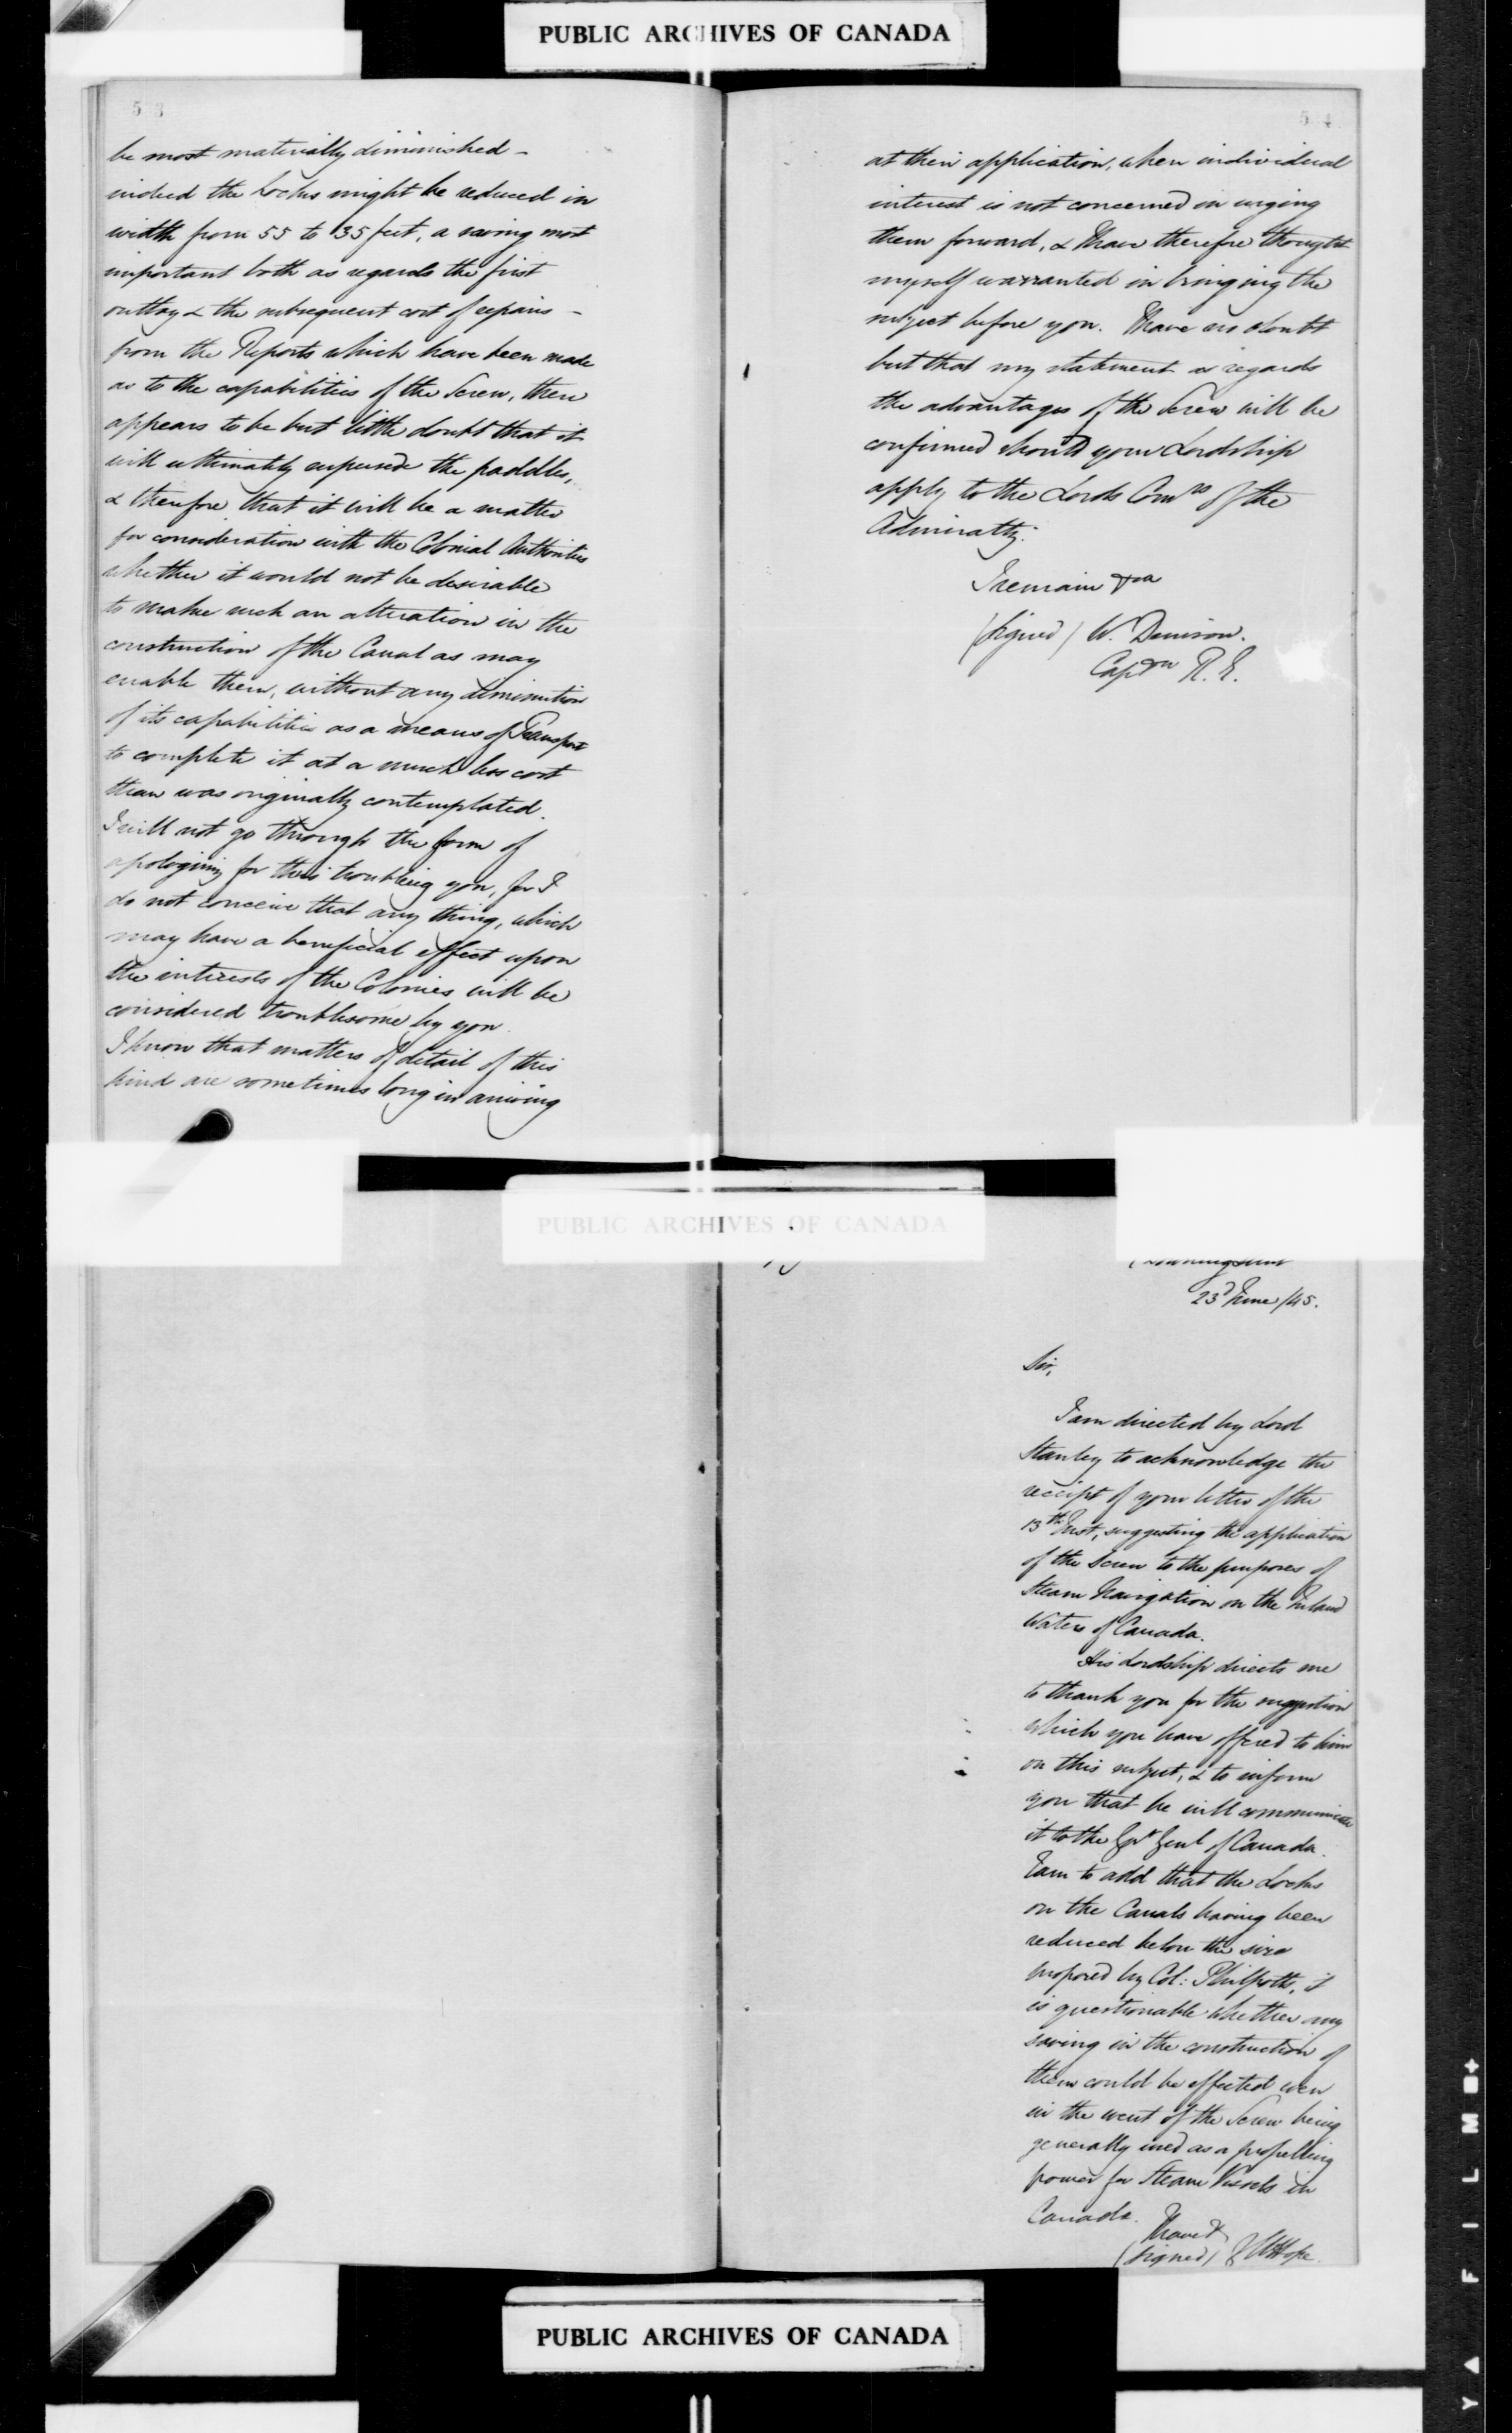 PUBLIC ARCHIVES OF CANADA
53
be most materially diminished –
indeed the Locks might be reduced in
width from 55 to 35 feet, a saving most
important both as regards the first
outlay & the subsequent cost of repairs –
from the Reports which have been made
as to the capabilities of the Screw, there
appears to be but little doubt that it
will ultimately supersede the paddles,
& therefore that it will be a matter
for consideration with the Colonial Authorities
whether it would not be desirable
to make such an alteration in the
construction of the Canal as may
enable them, without any diminution
of its capabilities as a means of Transport
to complete it at a much less cost
than was originally contemplated.
I will not go through the form of
apologizing for thus troubling you, for I
do not conceive that any thing, which
may have a beneficial effect upon
the interests of the Colonies will be
considered troublesome by you.
I know that matters of detail of this
kind are sometimes long in arriving
54
at their application, when individual
interest is not concerned in urging
them forward, & I have therefore thought
myself warranted in bringing the
subject before you. I have no doubt
but that my statement as regards
the advantages of the Screw will be
confirmed should your Lordship
apply to the Lords Comrs of the
Admiralty.
I remain &ca
(signed) W. Denison.
Captn R. E.
PUBLIC ARCHIVES OF CANADA
Downing Street
23d June /45.
Sir,
I am directed by Lord
Stanley to acknowledge the
receipt of your letter of the
13th Inst, suggesting the application
of the Screw to the purposes of
Steam Navigation on the Inland
Waters of Canada.
His Lordship directs me
to thank you for the suggestion
which you have offered to him
on this subject, & to inform
you that he will communicate
it to the Govr Genl of Canada.
I am to add that the Locks
on the Canals having been
reduced below the size
proposed by Col: Philpotts, it
is questionable whether any
saving in the construction of
them could be effected even
in the event of the Screw being
generally used as a propelling
power for Steam Vessels in
Canada.
I have &
(signed) G W Hope
PUBLIC ARCHIVES OF CANADA